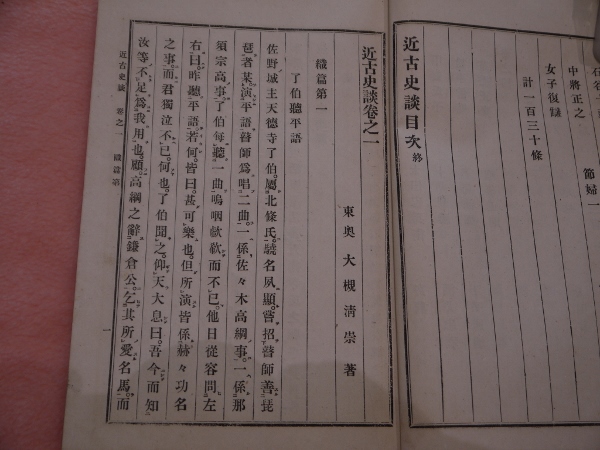 石谷十藏
中將正之
節婦一
女子復讎
計一百三十條
近古史談目次終
近古史談卷之一
東奧 大槻淸崇 著
織篇第一
了伯聽平語
佐野城主天德寺了伯。屬北條氏。驍名夙顯。嘗招瞽師善琵
琶者某。演平語。瞽師爲唱二曲。一係佐々木高綱事。一係那
須宗高事。了伯每聽一曲。嗚咽欷歔而不已。他日從容問左
右曰。昨聽平語若何。皆曰。甚可樂也。但所演皆係赫々功名
之事。而君獨泣不已何也。了伯聞之。仰天大息曰。吾今而知
汝等不足爲我用也。顧高綱之辭鎌倉公。乞其所愛名馬。而
近古史談 卷之一 織篇第一
一